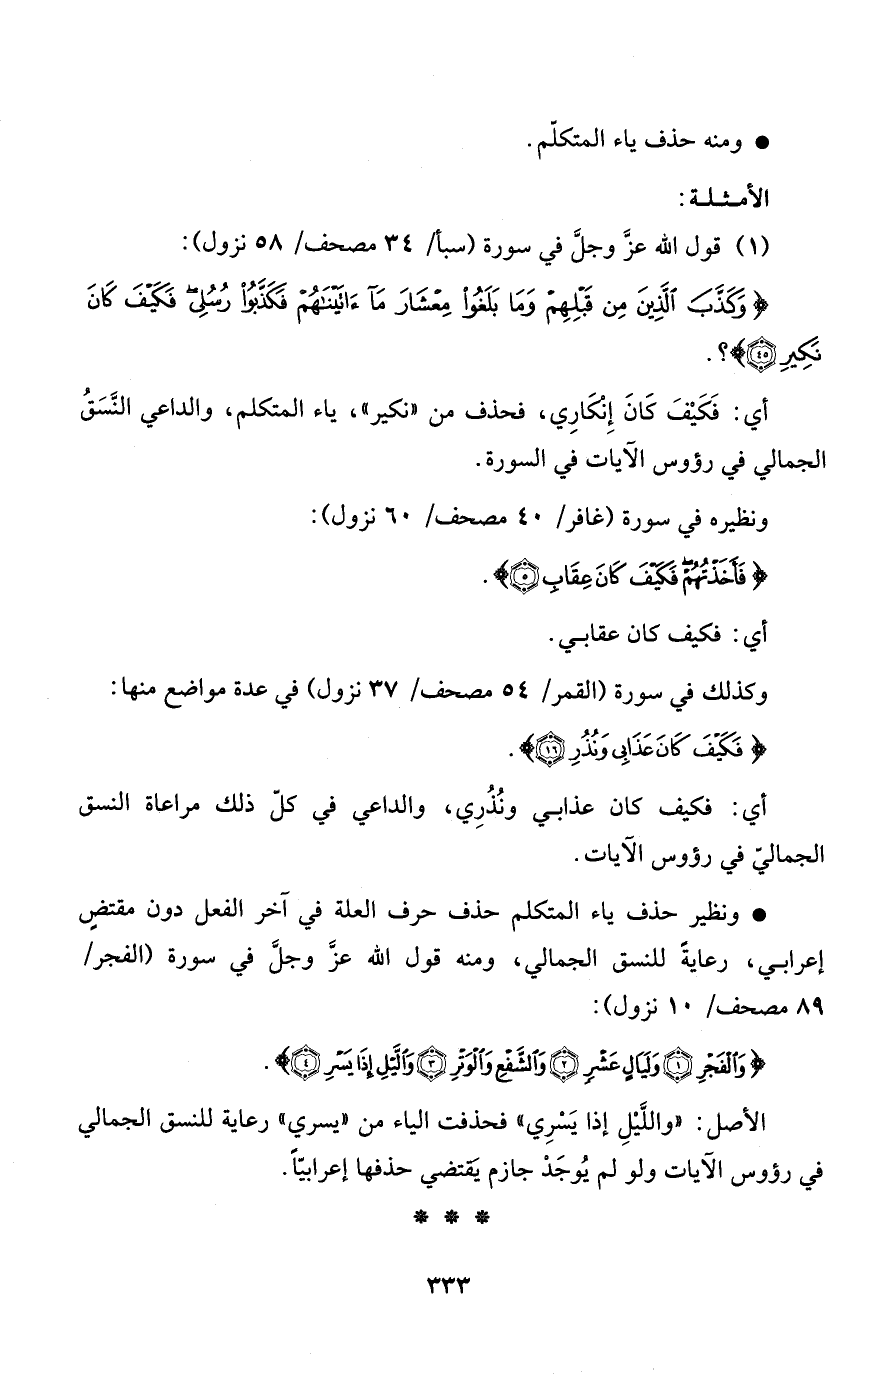 ● ومنه حذف ياء المتكلّم.
الأمـثـلـة:
(١) قول الله عزَّ وجلَّ في سورة (سبأ/ ٣٤ مصحف/ ٥٨ نزول):
﴿وَكَذَّبَ ٱلَّذِينَ مِن قَبْلِهِمْ وَمَا بَلَغُوا۟ مِعْشَارَ مَآ ءَاتَيْنَٰهُمْ فَكَذَّبُوا۟ رُسُلِىۖ فَكَيْفَ كَانَ
نَكِيرِ ٤٥﴾؟.
أي: فَكَيْفَ كَانَ إِنْكَارِي، فحذف من «نكير»، ياء المتكلم، والداعي النَّسَقُ
الجمالي في رؤوس الآيات في السورة.
ونظيره في سورة (غافر/ ٤٠ مصحف/ ٦٠ نزول):
﴿فَأَخَذْتُهُمْۖ فَكَيْفَ كَانَ عِقَابِ ٥﴾.
أي: فكيف كان عقابـي.
وكذلك في سورة (القمر/ ٥٤ مصحف/ ٣٧ نزول) في عدة مواضع منها:
﴿فَكَيْفَ كَانَ عَذَابِى وَنُذُرِ ١٦﴾.
أي: فكيف كان عذابـي ونُذُرِي، والداعي في كلّ ذلك مراعاة النسق
الجماليّ في رؤوس الآيات.
● ونظير حذف ياء المتكلم حذف حرف العلة في آخر الفعل دون مقتضٍ
إعرابـي، رعايةً للنسق الجمالي، ومنه قول الله عزَّ وجلَّ في سورة (الفجر/
٨٩ مصحف/ ١٠ نزول):
﴿وَٱلْفَجْرِ ١ وَلَيَالٍ عَشْرٍ ٢ وَٱلشَّفْعِ وَٱلْوَتْرِ ٣ وَٱلَّيْلِ إِذَا يَسْرِ ٤﴾.
الأصل: «واللَّيْلِ إذا يَسْرِي» فحذفت الياء من «يسري» رعاية للنسق الجمالي
في رؤوس الآيات ولو لم يُوجَدْ جازم يَقتضي حذفها إعرابيّاً.
* * *
٣٣٣